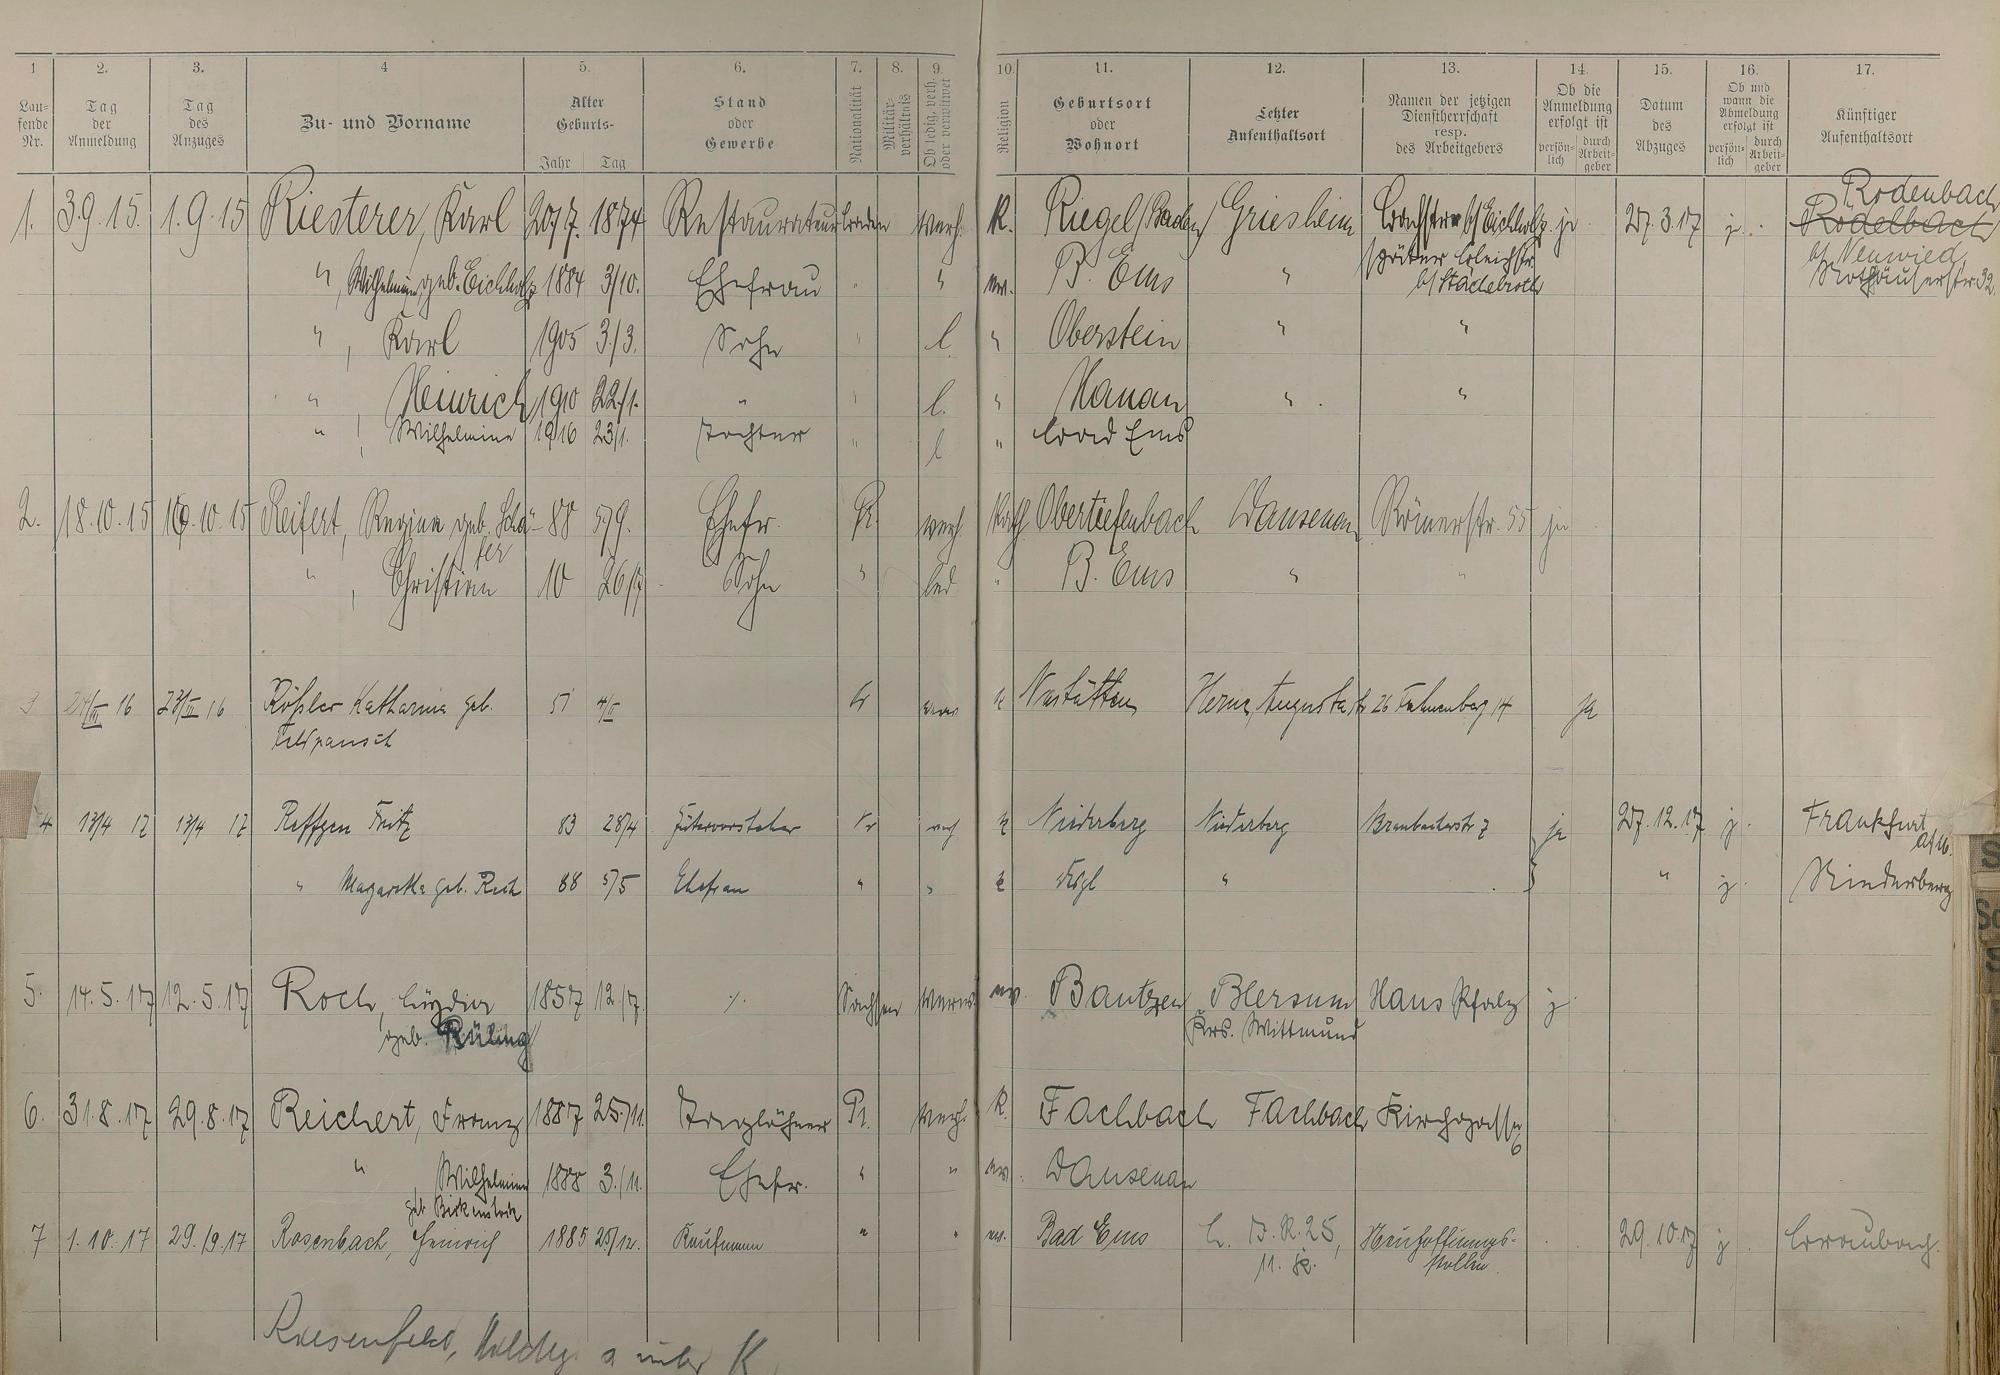 1 2. 3. 4 5. 6. 7. 8. 9. 10. 11. 12. 13. 14. 15. 16. 17.
Lau-
fende
Nr.
Tag
der
Anmeldung
Tag
des
Anzuges
Zu- und Vorname
Alter
Geburts-
Jahr Tag
Stand
oder
Gewerbe
Nationalität
Militär-
verhältnis
Ob ledig, verh.
oder verwitwet
Religion
Geburtsort
oder
Wohnort
Letzter
Aufenthaltsort
Namen der jetzigen
Dienstherrschaft
resp.
des Arbeitgebers
Ob die
Anmeldung
erfolgt ist
persön-
lich
durch
Arbeit-
geber
Datum
des
Abzuges
Ob und
wann die
Abmeldung
erfolgt ist
persön-
lich
durch
Arbeit-
geber
Künftiger
Aufenthaltsort
Rodenbach
1. 3.9.15. 1.9.15 Riesterer, Karl 20/7. 1874 Restaurateur Baden verh. K. Riegel/Baden Griesheim b/Eichholz ja 27.3.17 j. Rodelbach
b/Neuwied
", Wilhelmine geb. Eichholz 1884 3/10. Ehefrau " " ev. B. Ems " später Bleichstr.
", Karl 1905 3/3. Sohn " l. " Oberstein " "
", Heinrich 1910 22/1. " " l. " Hanau " "
", Wilhelmine 1916 23/1. Tochter " l " Bad Ems
2. 18.10.15 16.10.15 Reifert, Regina geb. Schä-
fer
88 5/9. Ehefr. Pr. verh. Kath Obertiefenbach Dausenau Römerstr. 55 ja
", Christian 10 26/7 Sohn " led. " B. Ems " "
3 24/III 16 23/III 16 Rößler Katharina geb. 51 4/II Pr k Nastätten Herne, Augustastr 26 Fahnenberg 14 ja
Feldpausch
4 13/4 17 13/4 17 Reffgen Fritz 83 28/4 Gütervorsteher Pr verh k Niederberg Niederberg Braubacherstr 7 ja 27.12.17 j. Frankfurt
a/M.
" Margaretha geb. Reich 88 5/5 Ehefrau " " k " " j. Niederberg
5. 14.5.17 12.5.17 Koch, Lydia 1857 12./7. ./. Sachsen Verw. ev. Bautzen Blersum Haus Pfalz j.
geb. Rüling
Krs. Wittmund
6. 31.8.17 29.8.17 Reichert, Franz 1887 25./11. Taglöhner Pr. verh. K. Fachbach Fachbach Kirchgasse
6
" , Wilhelmine 1888 3./11. Ehefr. " " ev. Dausenau
geb. Birkenstock
7 1.10.17 29./9.17 Rosenbach, Heinrich 1885 25/12. Kaufmann " " ev. Bad Ems 25, Neuhoffnungs-
stollen
29.10.17 j Braubach.
11. K.
Riesenfeld, unter K